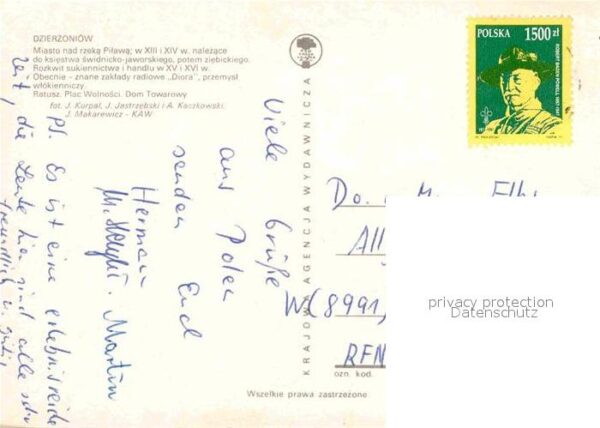 DZIERŻONIÓW
Miasto nad rzeką Piławą; w XIII i XIV w. należące
do księstwa świdnicko-jaworskiego, potem ziębickiego.
Rozkwit sukiennictwa i handlu w XV i XVI w.
Obecnie - znane zakłady radiowe „Diora", przemysł
włókienniczy.
Ratusz. Plac Wolności. Dom Towarowy
fot. J. Korpal, J. Jastrzębski i A. Kaczkowski,
J. Makarewicz - KAW
KRAJOWA AGENCJA WYDAWNICZA
POLSKA 1500 zł
ROBERT BADEN POWELL 1857-1941
Viele Grüße
aus Polen
senden Euch
Hermann
Martin
PS. Es ist eine erlebnisreiche
Zeit, die Leute hier sind alle sehr
freundlich u.
Do.
All
W(8991)
RFN
ozn. kod.
Wszelkie prawa zastrzeżone
privacy protection
Datenschutz